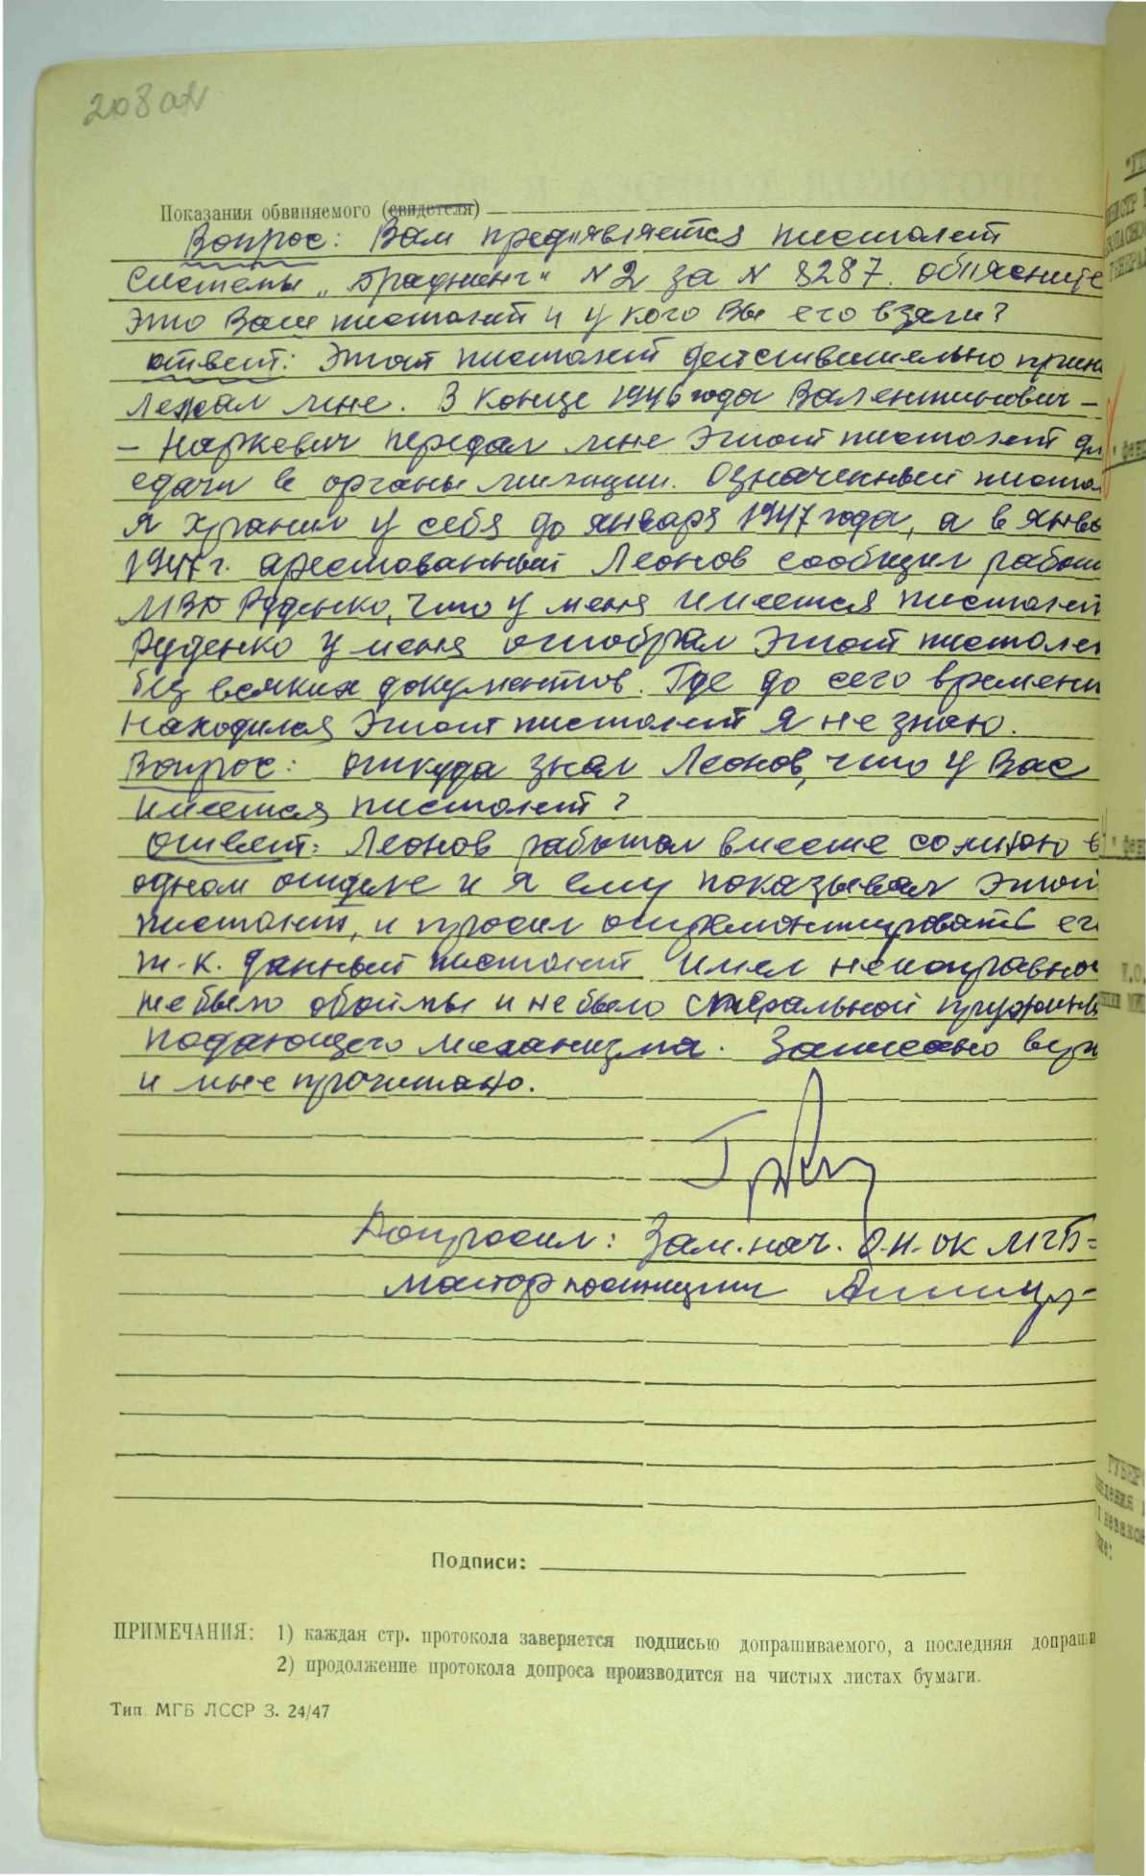 208 об
Показания обвиняемого (свидетеля)
Вопрос: Вам предъявляется пистолет
системы „Браунинг" N2 за N 8287. объясните
это Ваш пистолет и у кого Вы его взяли?
ответ: Этот пистолет действительно прин
лежал мне. В конце 1946 года Валентинович -
- Наркевич передал мне этот пистолет дл
сдачи в органы милиции. Означенный писто
я хранил у себя до января 1947 года, а в янва
1947 г. арестованный Леонов сообщил работ
МВД Руденко, что у меня имеется пистолет
Руденко у меня отобрал этот пистолет
без всяких документов. Где до сего времени
находился этот пистолет я не знаю.
Вопрос: откуда знал Леонов, что у Вас
имеется пистолет?
ответ: Леонов работал вместе со мною в
одном отделе и я ему показывал этот
пистолет, и просил отремонтировать ег
т.к. данный пистолет имел неисправно
не было обоймы и не было спиральной пружины
подающего механизма. Записано верн
и мне прочитано.
Допросил: Зам. нач. О.И. ОК МГБ-
майор
Подписи:
ПРИМЕЧАНИЯ: 1) каждая стр. протокола заверяется подписью допрашиваемого, а последняя допраши
2) продолжение протокола допроса производится на чистых листах бумаги.
Тип. МГБ ЛССР З. 24/47